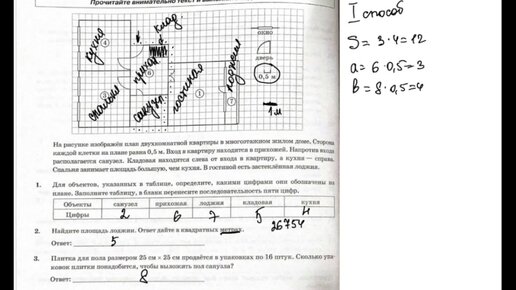 Прочитайте внимательно текст и выполн
I способ
S = 3·4=12
a= 6·0,5=3
b= 8·0,5=4
клад.
кухня
4
прихож
6
спальня
2
санузл
гостиная
1
лоджия
7
окно
дверь
0,5 м
1 м
На рисунке изображён план двухкомнатной квартиры в многоэтажном жилом доме. Сторона
каждой клетки на плане равна 0,5 м. Вход в квартиру находится в прихожей. Напротив входа
располагается санузел. Кладовая находится слева от входа в квартиру, а кухня — справа.
Спальня занимает площадь большую, чем кухня. В гостиной есть застеклённая лоджия.
1. Для объектов, указанных в таблице, определите, какими цифрами они обозначены на
плане. Заполните таблицу, в бланк перенесите последовательность пяти цифр.
Объекты санузел прихожая лоджия кладовая кухня
Цифры 2 6 7 5 4
26754
2. Найдите площадь лоджии. Ответ дайте в квадратных метрах.
Ответ: 5
3. Плитка для пола размером 25 см × 25 см продаётся в упаковках по 16 штук. Сколько упа-
ковок плитки понадобится, чтобы выложить пол санузла?
Ответ: 8